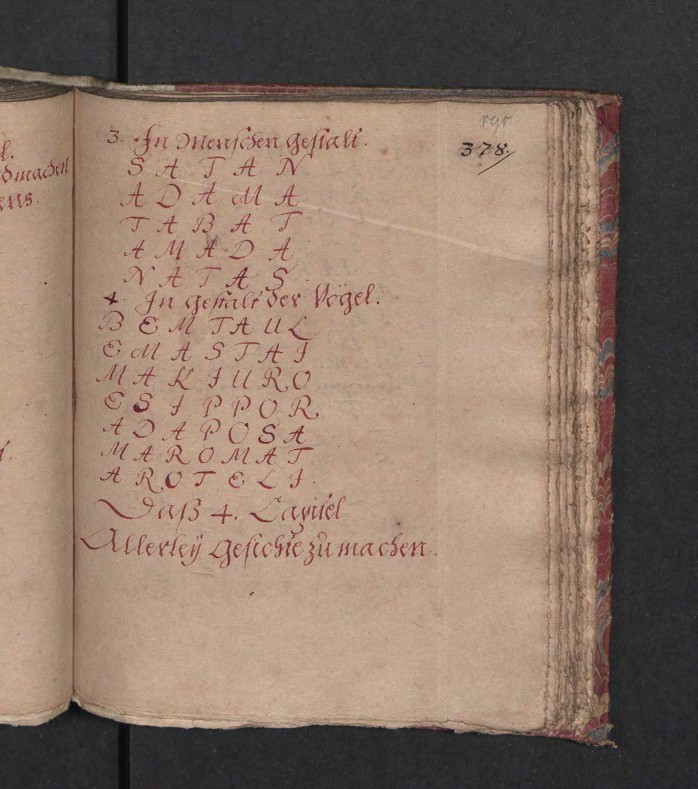 l.
dmachen
3. In Menschen gestalt.
378.
S A T A N
A D A M A
T A B A T
A M A D A
N A T A S.
4. In gestalt der Vögel.
B E M T A U L
E M A S T A I
M A K I U R O
E S I P P O R.
A D A P O S A
M A R O M A T
A R O T E L I.
Daß 4. Capitel
Allerleÿ Gesichte zu machen.